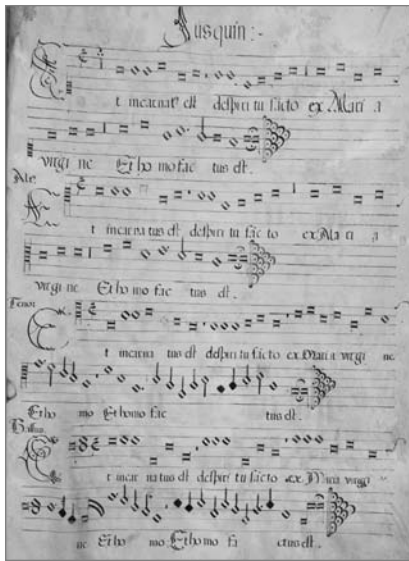 Jusquin:-
Et incarnatꝰ est despiritu sãcto ex Maria
virgine Et homo factus est.
Alt9
Et incarnatus est despiritu sãcto ex Maria
virgine Et homo factus est.
Tenor
Et incarnatus est despiritu sãcto ex Maria virgine
Et homo Et homo factus est.
Bassus
Et incarnatus est despiritu sãcto ex Maria virgi
ne Et homo Et homo factus est.